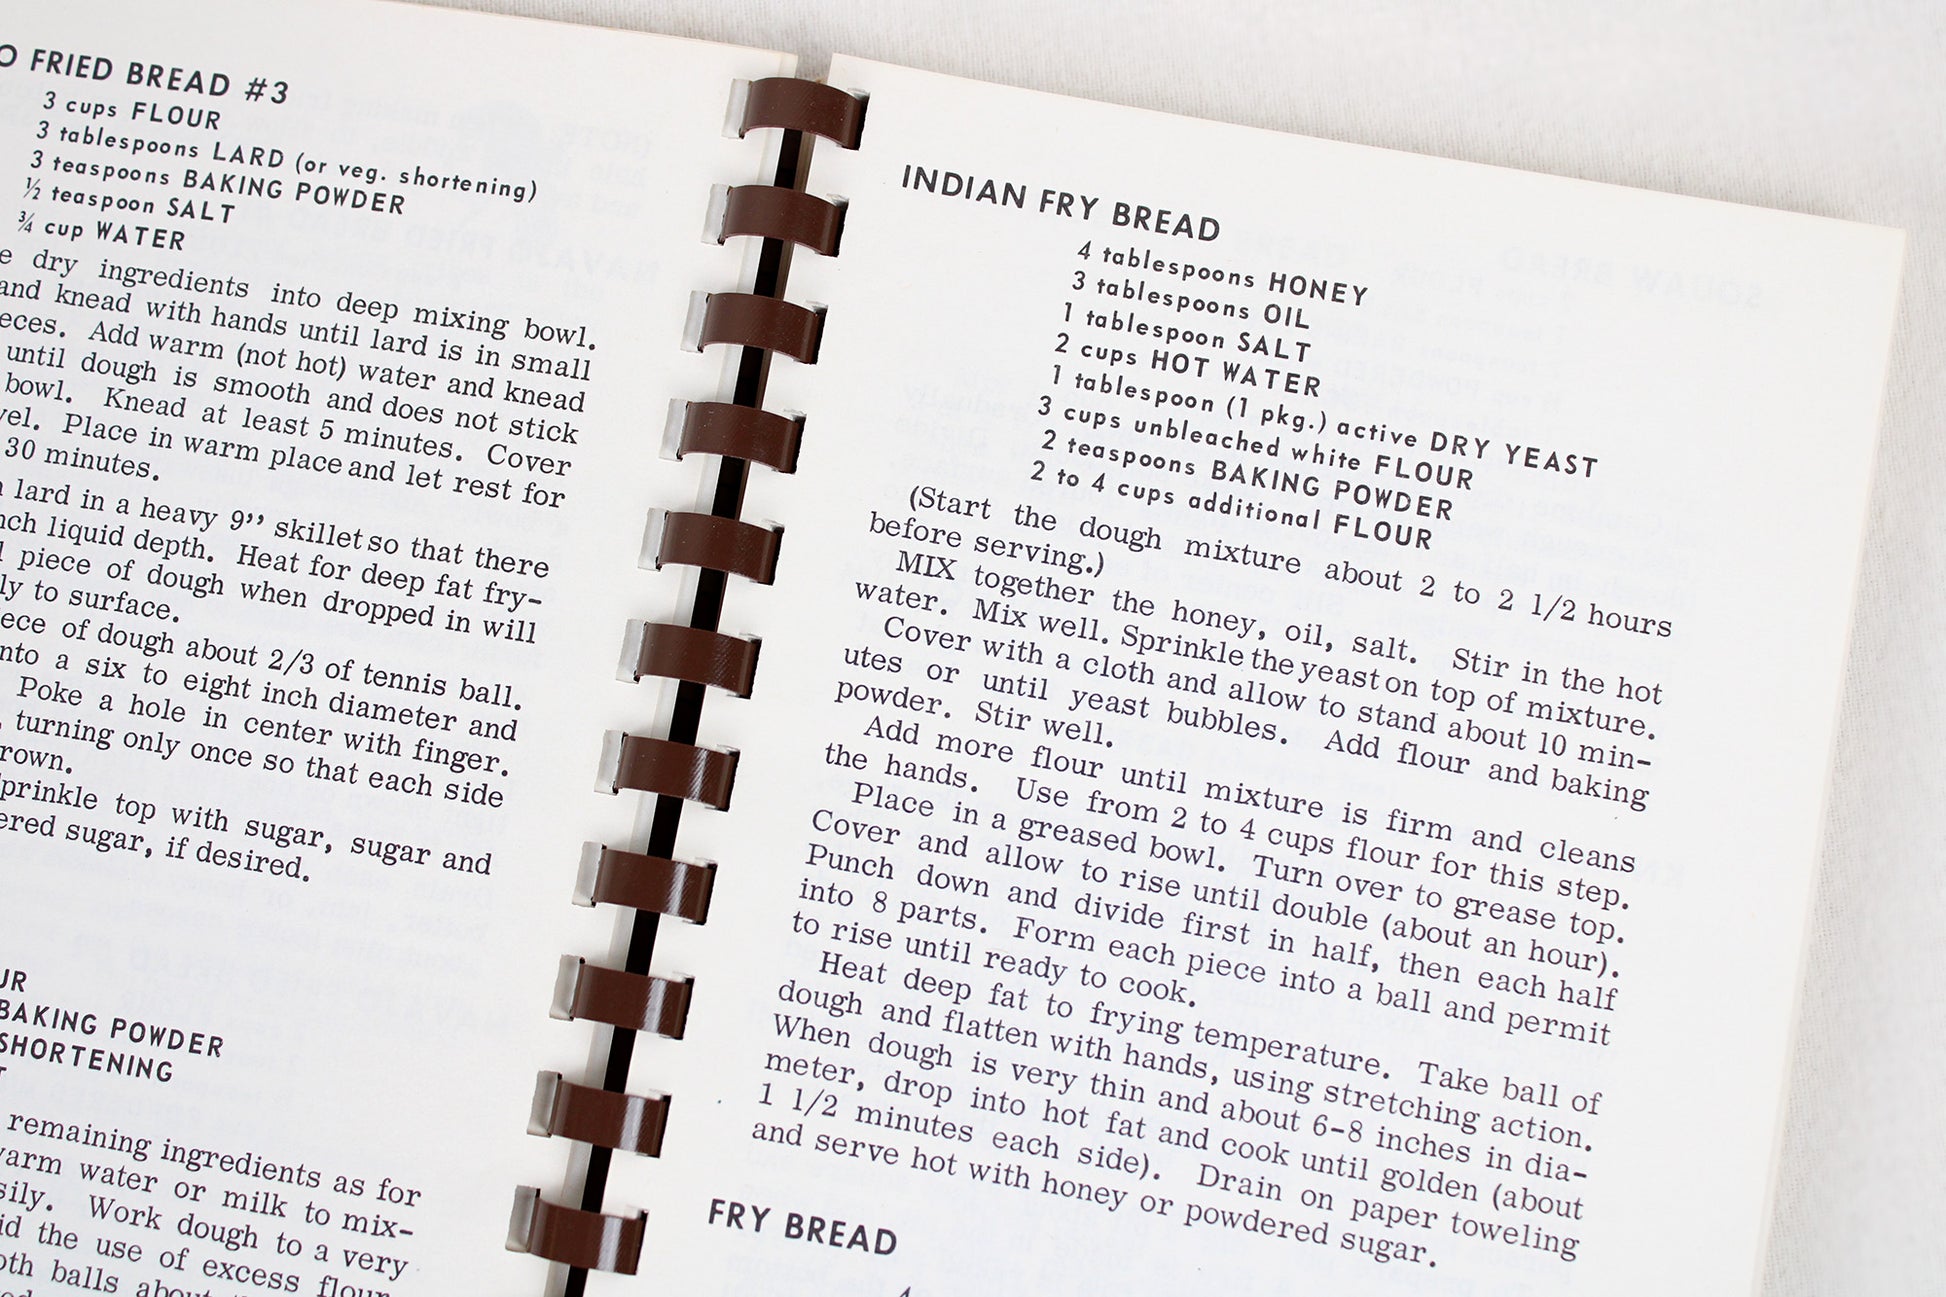 FRIED BREAD #3
3 cups FLOUR
3 tablespoons LARD (or veg. shortening)
3 teaspoons BAKING POWDER
½ teaspoon SALT
¾ cup WATER
dry ingredients into deep mixing bowl.
and knead with hands until lard is in small
Add warm (not hot) water and knead
until dough is smooth and does not stick
bowl. Knead at least 5 minutes. Cover
Place in warm place and let rest for
30 minutes.
lard in a heavy 9” skillet so that there
liquid depth. Heat for deep fat fry-
piece of dough when dropped in will
to surface.
of dough about 2/3 of tennis ball.
a six to eight inch diameter and
Poke a hole in center with finger.
turning only once so that each side
top with sugar, sugar and
sugar, if desired.
BAKING POWDER
SHORTENING
remaining ingredients as for
water or milk to mix-
Work dough to a very
the use of excess flour
balls
INDIAN FRY BREAD
4 tablespoons HONEY
3 tablespoons OIL
1 tablespoon SALT
2 cups HOT WATER
1 tablespoon (1 pkg.) active DRY YEAST
3 cups unbleached white FLOUR
2 teaspoons BAKING POWDER
2 to 4 cups additional FLOUR
(Start the dough mixture about 2 to 2 1/2 hours
before serving.)
MIX together the honey, oil, salt. Stir in the hot
water. Mix well. Sprinkle the yeast on top of mixture.
Cover with a cloth and allow to stand about 10 min-
utes or until yeast bubbles. Add flour and baking
powder. Stir well.
Add more flour until mixture is firm and cleans
the hands. Use from 2 to 4 cups flour for this step.
Place in a greased bowl. Turn over to grease top.
Cover and allow to rise until double (about an hour).
Punch down and divide first in half, then each half
into 8 parts. Form each piece into a ball and permit
to rise until ready to cook.
Heat deep fat to frying temperature. Take ball of
dough and flatten with hands, using stretching action.
When dough is very thin and about 6-8 inches in dia-
meter, drop into hot fat and cook until golden (about
1 1/2 minutes each side). Drain on paper toweling
and serve hot with honey or powdered sugar.
FRY BREAD